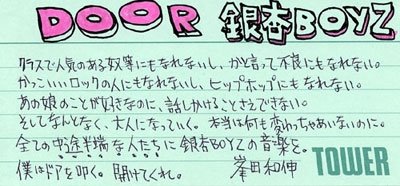 DOOR 銀杏BOYZ
クラスで人気のある奴等にもなれないし、かと言って不良にもなれない。
かっこいいロックの人にもなれないし、ヒップホップにもなれない。
あの娘のことが好きなのに、話しかけることさえできない。
そしてなんとなく、大人になっていく。本当は何も変わっちゃあいないのに。
全ての中途半端な人たちに銀杏BOYZの音楽を。
僕はドアを叩く。開けてくれ。 峯田和伸 TOWER